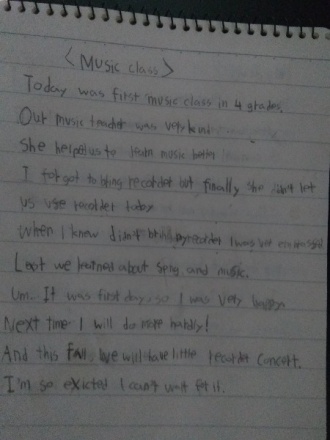 <Music class>
Today was first music class in 4 grades.
Our music teacher was very kind
She helped us to learn music better
I forgot to bring recorder but finally she didn't let
us use recorder today
When I knew didn't bring my recorder I was
Last we learned about song and music.
Um. It was first day, so I was very happy
Next time I will do more hardly!
And this fall, we will have little recorder concert.
I'm so exicted I can't wait for it.